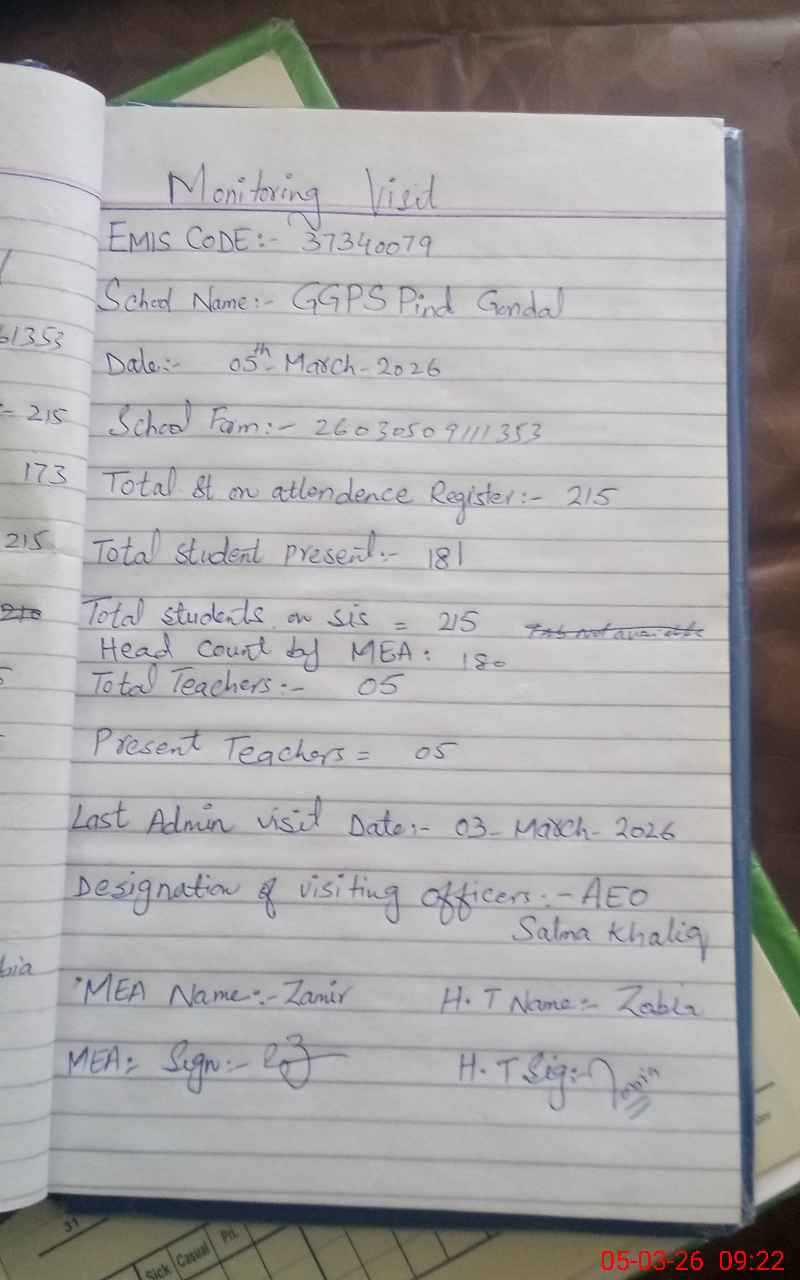 Monitoring Visit
EMIS CODE:- 37340079
School Name:- GGPS Pind Gondal
Date:- 05th March-2026
School Form:- 26030509111353
Total St on attendence Register:- 215
Total student present:- 181
Total students on sis = 215
Head Count by MEA: 180
Total Teachers:- 05
Present Teachers = 05
Last Admin visit Date:- 03-March-2026
Designation of visiting officers:- AEO
Salma Khaliq
MEA Name:- Zamir H.T Name:- Zabia
MEA: Sign:- H.T Sig:-
61353
= 215
173
215
210
bia
31
Sick Casual Pri.
05-03-26 09:22